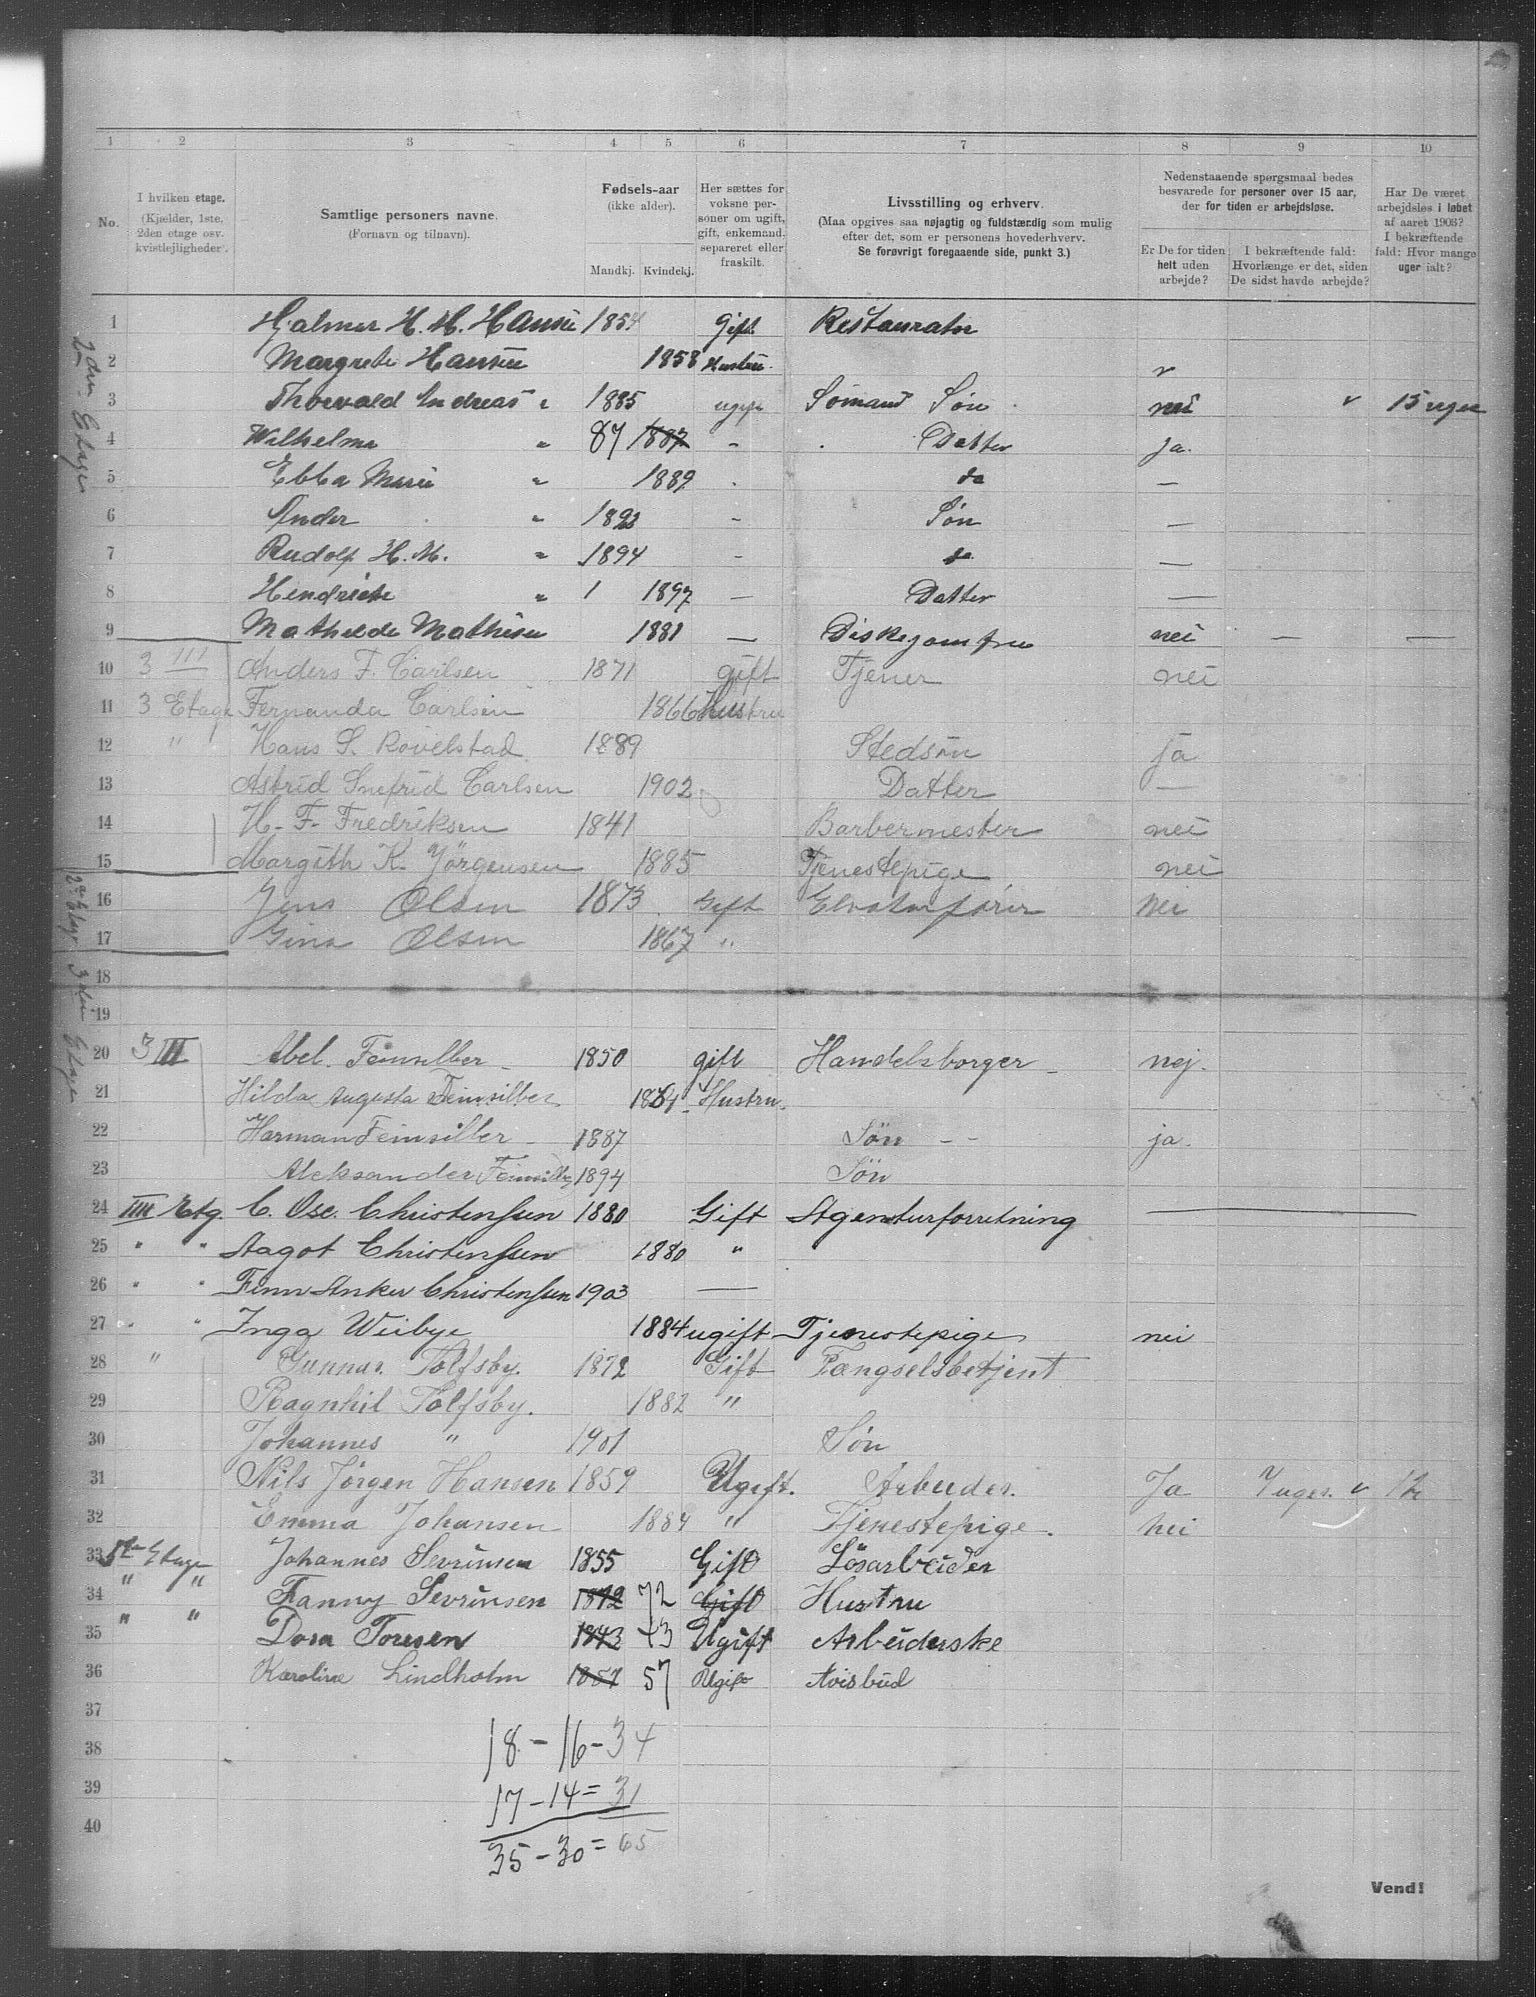 1 2 3 4 5 6 7 8 9 10
No.
I hvilken etage. (Kjælder, 1ste, 2den etage osv. kvistleiligheder.)
Samtlige personers navne. (Fornavn og tilnavn).
Fødsels-aar (ikke alder). Mandkj. Kvindekj.
Her sættes for voksne personer om ugift, gift, enkemand. separeret eller fraskilt.
Livsstilling og erhverv. (Maa opgives saa nøjagtig og fuldstændig som mulig efter det, som er personens hovederhverv. Se forøvrigt foregaaende side, punkt 3.)
Nedenstaaende spørgsmaal bedes besvarede for personer over 15 aar, der for tiden er arbejdsløse.
Er De for tiden helt uden arbejde?
I bekræftende fald: Hvorlænge er det, siden De sidst havde arbejde?
Har De været arbejdsløs i løbet af aaret 1903? I bekræftende fald: Hvor mange uger ialt?
2den Etage
1 Hjalmar H. M. Hansen 1854 Gift Restauratør
2 Margrete Hansen 1858 Hustru v
3 Thorvald Andreas " 1885 ugift Sømand Søn nei v 15 uger
4 Wilhelma " 87 1887 - Datter ja.
5 Ebba Marie " 1889 - do —
6 Ander " 1892 - Søn —
7 Rudolf H. M. " 1894 - do —
8 Hendriette " 1 1897 — Datter —
9 Mathilde Mathisen 1881 — Diskejomfru nei — —
10 3 III Anders F. Carlsen 1871 gift Tjener nei
11 3 Etage Fernanda Carlsen 1866 Hustru
12 " Hans S. Rovelstad 1889 Stedsøn ja
13 Astrid Snefrid Carlsen 1902 Datter —
14 H. F. Fredriksen 1841 Barbermester nei
15 Margith K. Jörgensen 1885 Tjenestepige nei
2den Etage
16 Jens Olsen 1873 Gift Elvatorfører Nei
17 Gina Olsen 1867 "
3den Etage
18
19
20 3 III Abel Feinsilber 1850 gift Handelsborger nej.
21 Hilda Augusta Feinsilber 1864 Hustru
22 Harman Feinsilber 1887 Søn - - ja.
23 Aleksander Feinsilber 1894 Søn
24 IIII Etg. C. Osc. Christenssen 1880 Gift Agenturforretning
25 " " Aagot Christenssen 1880 "
26 " " Finn Anker Christenssen 1903 —
27 " " Inga Weibye 1884 ugift Tjenestepige nei
28 " Gunnar Tolfsby. 1872 Gift Fængselsbetjent
29 Ragnhil Tolfsby. 1882 "
30 Johannes " 1901 Søn
31 Nils Jörgen Hansen 1859 Ugift. Arbeider. Ja 7 uger. v 12
32 Emma Johansen 1884 " Tjenestepige. nei
33 5te Etage Johannes Sevrinsen 1855 Gift Løsarbeider
34 " " Fanny Sevrinsen 1872 72 Gift Hustru
35 " " Dora Toresen 1843 43 Ugift Arbeiderske
36 Karoline Lindholm 1857 57 Ugift Avisbud
37
38
39
40
18 - 16 - 34
17 - 14 = 31
35 - 30 = 65
Vend!